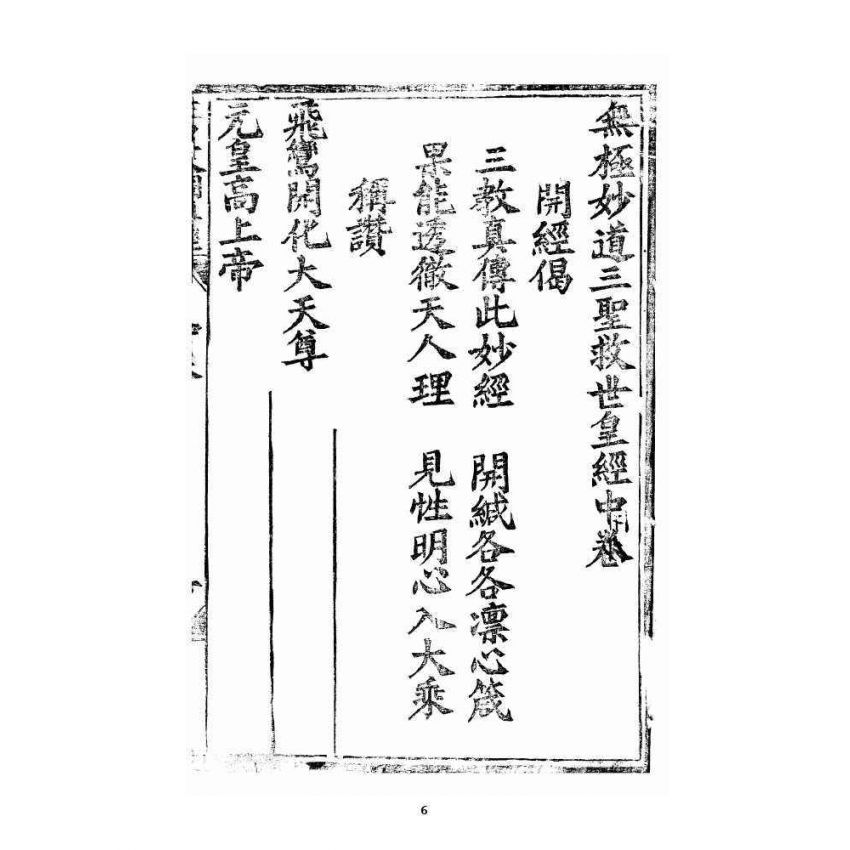 無極妙道三聖救世皇經中卷
開經偈
三教真傳此妙經　開緘各各凛心箴
果能透徹天人理　見性明心入大乘
稱讚
飛鸞開化大天尊
元皇高上帝
6